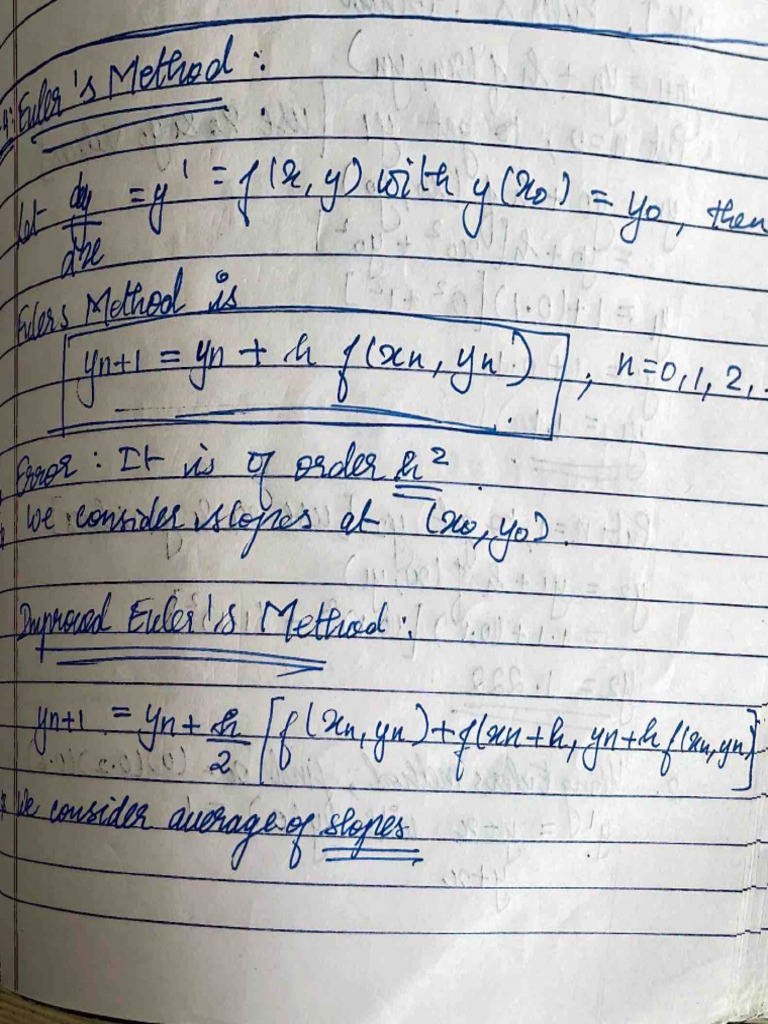 Euler's Method :
Let dy/dx = y' = f(x, y) with y(x₀) = y₀, then
Eulers Method is
yn+1 = yn + h f(xn, yn) ; n=0,1,2,.
Error : It is of order h².
We consider slopes at (x₀, y₀).
Improved Euler's Method :
yn+1 = yn + h/2 [f(xn, yn) + f(xn+h, yn+h f(xn, yn)]
We consider average of slopes